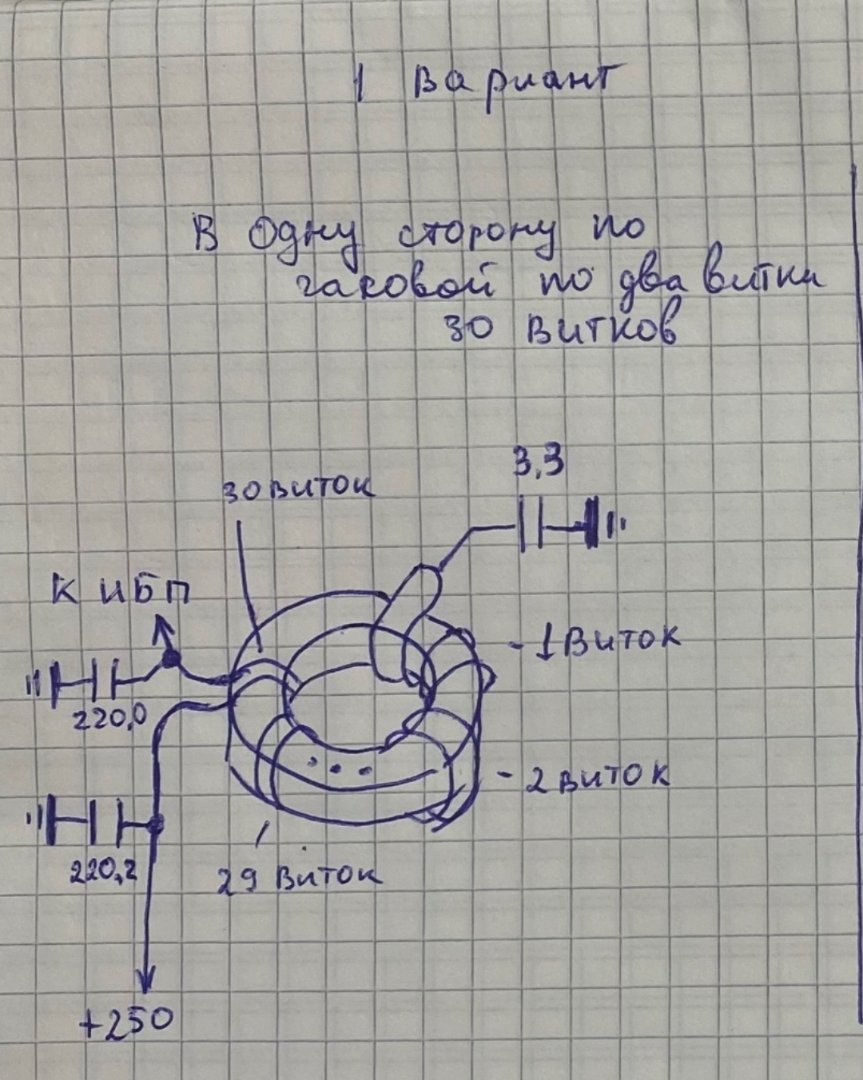 1 Вариант
В одну сторону по
часовой по два витки
30 витков
3,3
30 виток
К ИБП
- 1 виток
220,0
- 2 виток
220,2
29 виток
+250